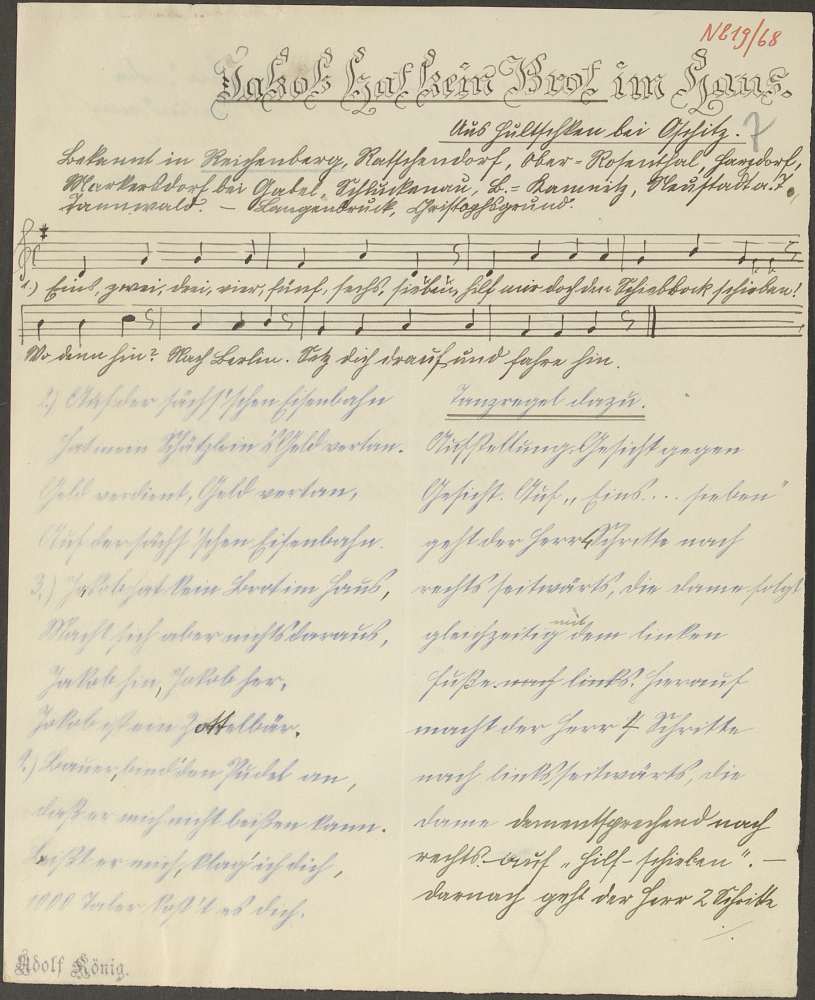 N 819/68
Jakob hat kein Brot im Haus.
Aus Hultschken bei Oschitz. 7
Bekannt in Reichenberg, Ratschendorf, Ober-Rosenthal, Harzdorf,
Markersdorf bei Gabel, Schluckenau, B.-Kamnitz, Neustadt a. T.,
Tannwald. – Langenbruck, Christophsgrund.
1.) Eins, zwei, drei, vier, fünf, sechs, sieben, hilf mir doch den Schiebbock schieben!
Wo denn hin? Nach Berlin. Setz dich drauf und fahre hin.
2.) Auf der sächs'schen Eisenbahn
Hat mein Schätzlein 's Geld vertan.
Geld verdient, Geld vertan,
Auf der sächs'schen Eisenbahn.
3.) Jakob hat kein Brot im Haus,
Macht sich aber nichts daraus,
Jakob hin, Jakob her,
Jakob ist ein Zottelbär.
4.) Bauer, bind den Pudel an,
daß er mich nicht beißen kann.
Beißt er mich, klag' ich dich,
1000 Taler kost't es dich.
Tanzregel dazu.
Aufstellung: Gesicht gegen
Gesicht. Auf „Eins... sieben"
geht der Herr 4 Schritte nach
rechts seitwärts, die Dame folgt
gleichzeitig mit dem linken
Fuße nach links. Hierauf
macht der Herr 4 Schritte
nach links seitwärts, die
Dame dementsprechend nach
rechts auf „Hilf – schieben". –
Darnach geht der Herr 2 Schritte
./.
Adolf König.